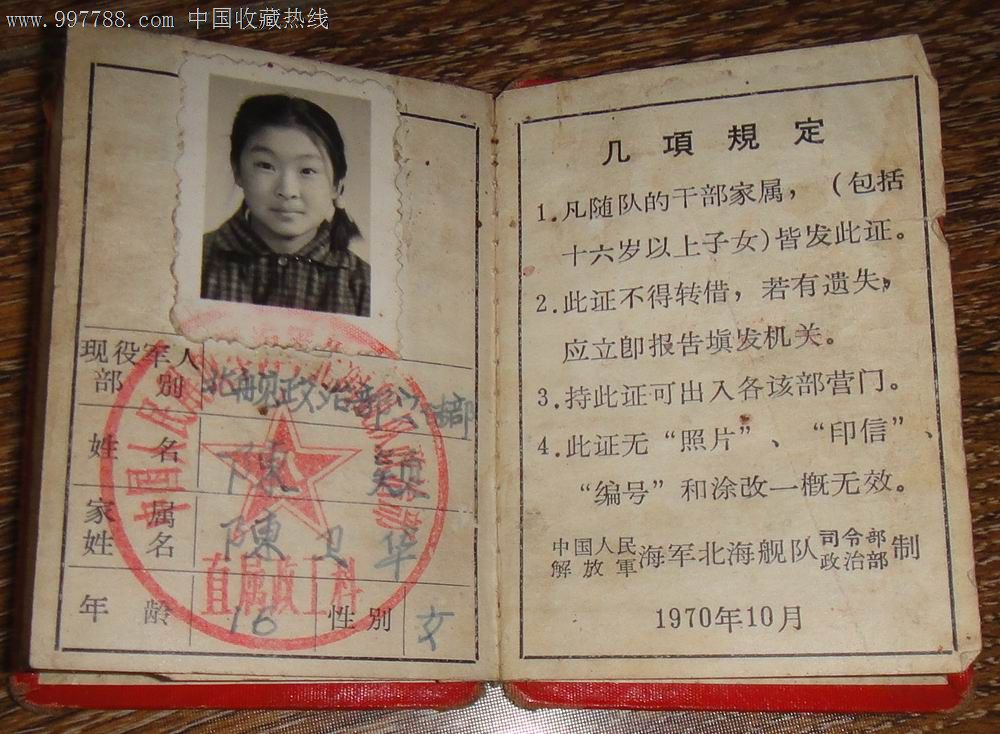 www.997788.com 中国收藏热线
现役军人
部别
北舰政治部
姓名
陳
家属
姓名
陳卫华
年龄
16
性别
女
中国人民
直属政工科
几項規定
1.凡随队的干部家属，(包括
十六岁以上子女)皆发此证。
2.此证不得转借，若有遗失，
应立即报告填发机关。
3.持此证可出入各该部营门。
4.此证无“照片”、“印信”、
“编号”和涂改一概无效。
中国人民
解放軍
海军北海舰队
司令部
政治部
制
1970年10月